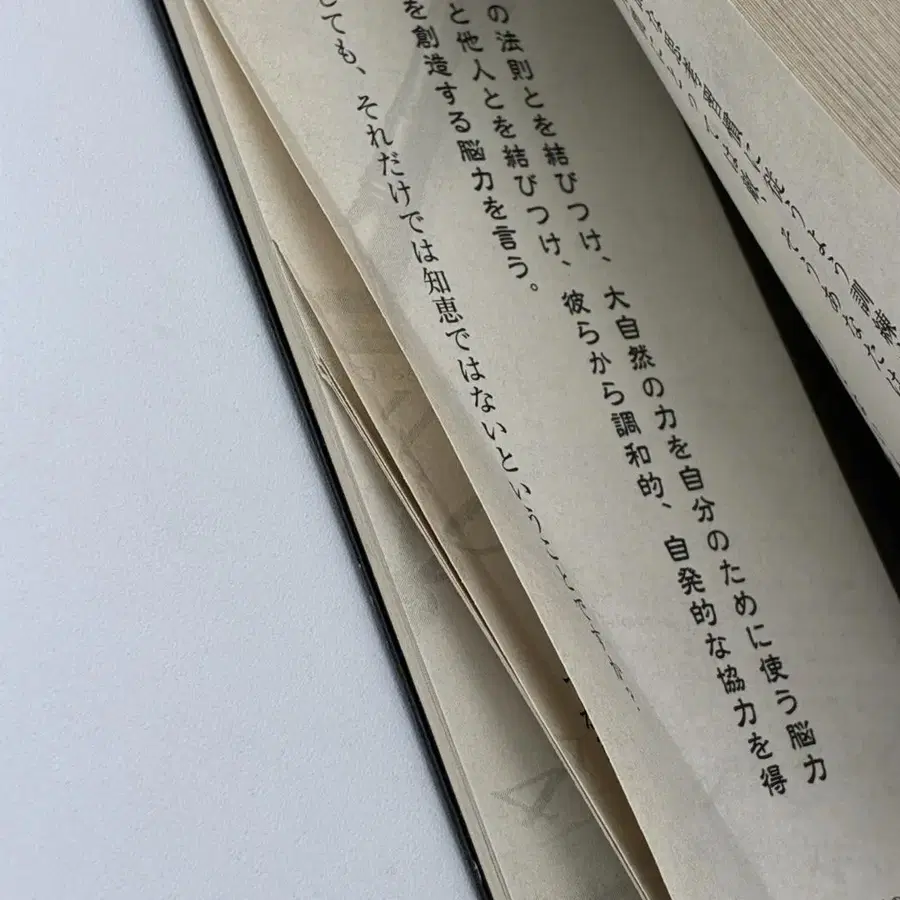 思考習慣に従うよう訓練
そうあなたは
の法則とを結びつけ、大自然の力を自分のために使う脳力
と他人とを結びつけ、彼らから調和的、自発的な協力を得
を創造する脳力を言う。
ても、それだけでは知恵ではないということ